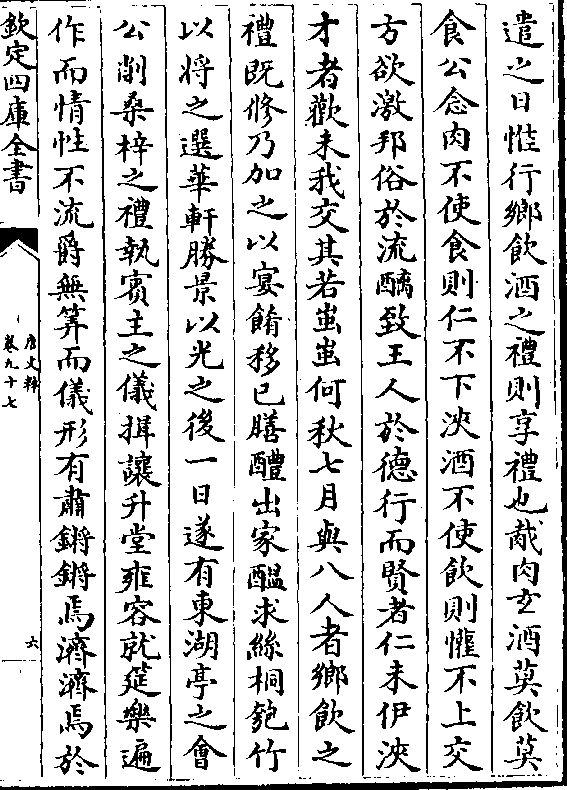 遣之日惟行鄉飲酒之禮則享禮也胾肉玄酒莫飲莫
食公念肉不使食則仁不下浹酒不使飲則懽不上交
方欲激邦俗於流醨致王人於德行而賢者仁未伊浹
才者歡未我交其若蚩蚩何秋七月與八人者鄉飲之
禮既修乃加之以宴餚移已膳醴出家醞求絲桐匏竹
以將之選華軒勝景以光之後一日遂有東湖亭之會
公削桑梓之禮執賓主之儀揖讓升堂雍容就筵樂遍
作而情性不流爵無筭而儀形有肅鏘鏘焉濟濟焉於
欽定四庫全書
唐文粹
卷九十七
六